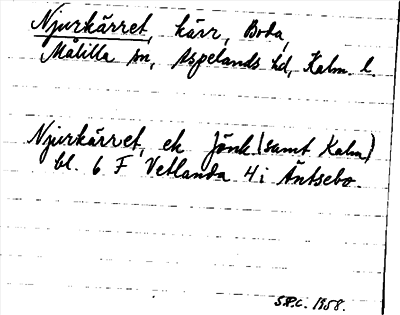 Njurkärret, kärr, Boda,
Målilla sn, Aspelands hd, Kalm. l.
Njurkärret, ek Jönk (samt Kalm)
bl. 6 F Vetlanda 4 i Äntsebo.
S.P.C. 1958.